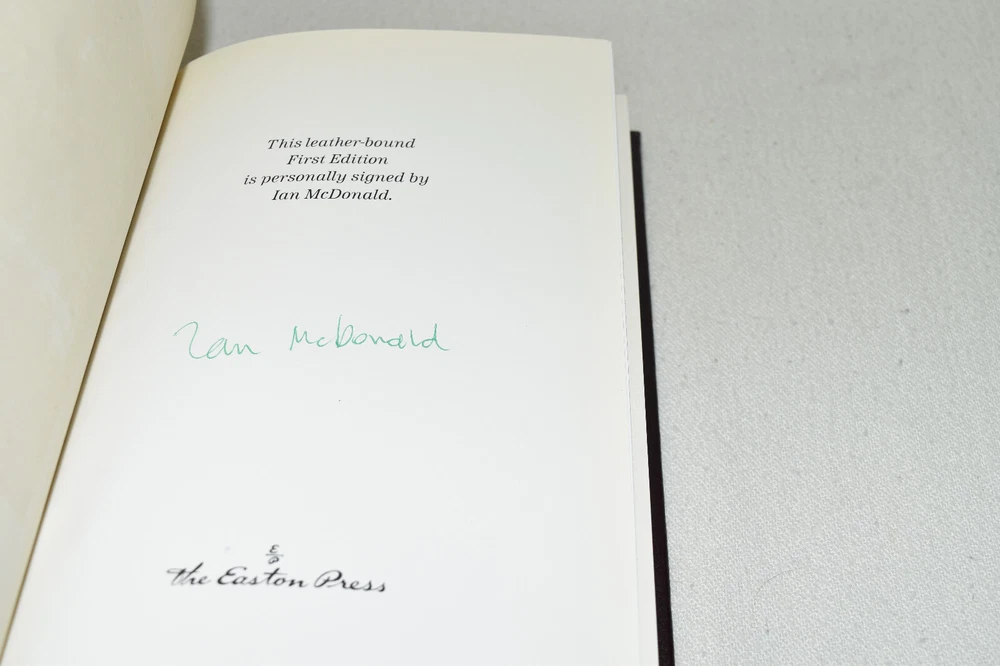 This leather-bound
First Edition
is personally signed by
Ian McDonald.
Ian McDonald
E
P
the Easton Press